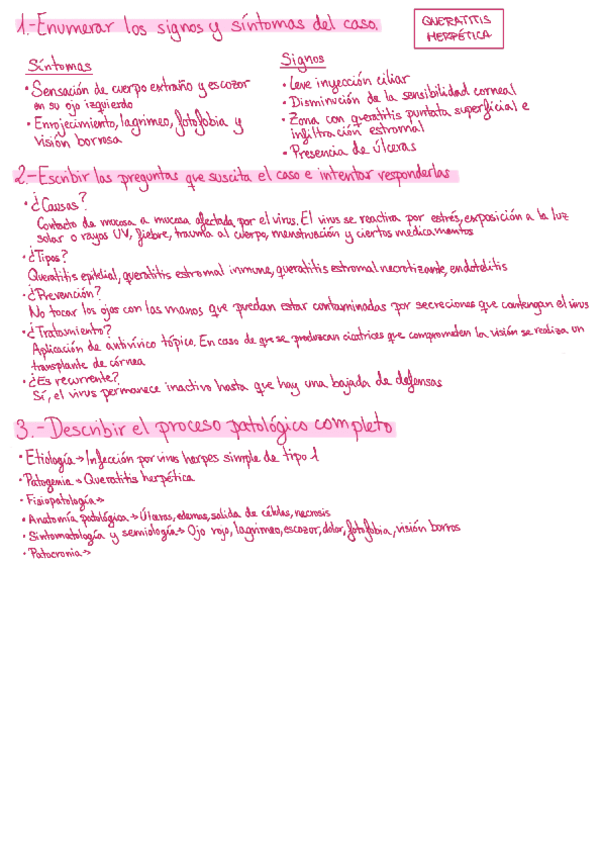 1.-Enumerar los signos y síntomas del caso.
QUERATITIS
HERPÉTICA
Síntomas
• Sensación de cuerpo extraño y escozor
en su ojo izquierdo
• Enrojecimiento, lagrimeo, fotofobia y
visión borrosa
Signos
• Leve inyección ciliar
• Disminución de la sensibilidad corneal
• Zona con queratitis puntata superficial e
infiltración estromal
• Presencia de úlceras
2.-Escribir las preguntas que suscita el caso e intentar responderlas
• ¿Causas?
Contacto de mucosa a mucosa afectada por el virus. El virus se reactiva por estrés, exposición a la luz
solar o rayos UV, fiebre, trauma al cuerpo, menstruación y ciertos medicamentos
• ¿Tipos?
Queratitis epitelial, queratitis estromal inmune, queratitis estromal necrotizante, endotelitis
• ¿Prevención?
No tocar los ojos con las manos que puedan estar contaminadas por secreciones que contengan el virus
• ¿Tratamiento?
Aplicación de antivírico tópico. En caso de que se produzcan cicatrices que comprometen la visión se realiza un
transplante de córnea
• ¿Es recurrente?
Sí, el virus permanece inactivo hasta que hay una bajada de defensas
3.-Describir el proceso patológico completo
• Etiología → Infección por virus herpes simple de tipo 1
• Patogenia → Queratitis herpética
• Fisiopatología →
• Anatomía patológica → Úlceras, edemas, salida de células, necrosis
• Sintomatología y semiología → Ojo rojo, lagrimeo, escozor, dolor, fotofobia, visión borros
• Patocronia →